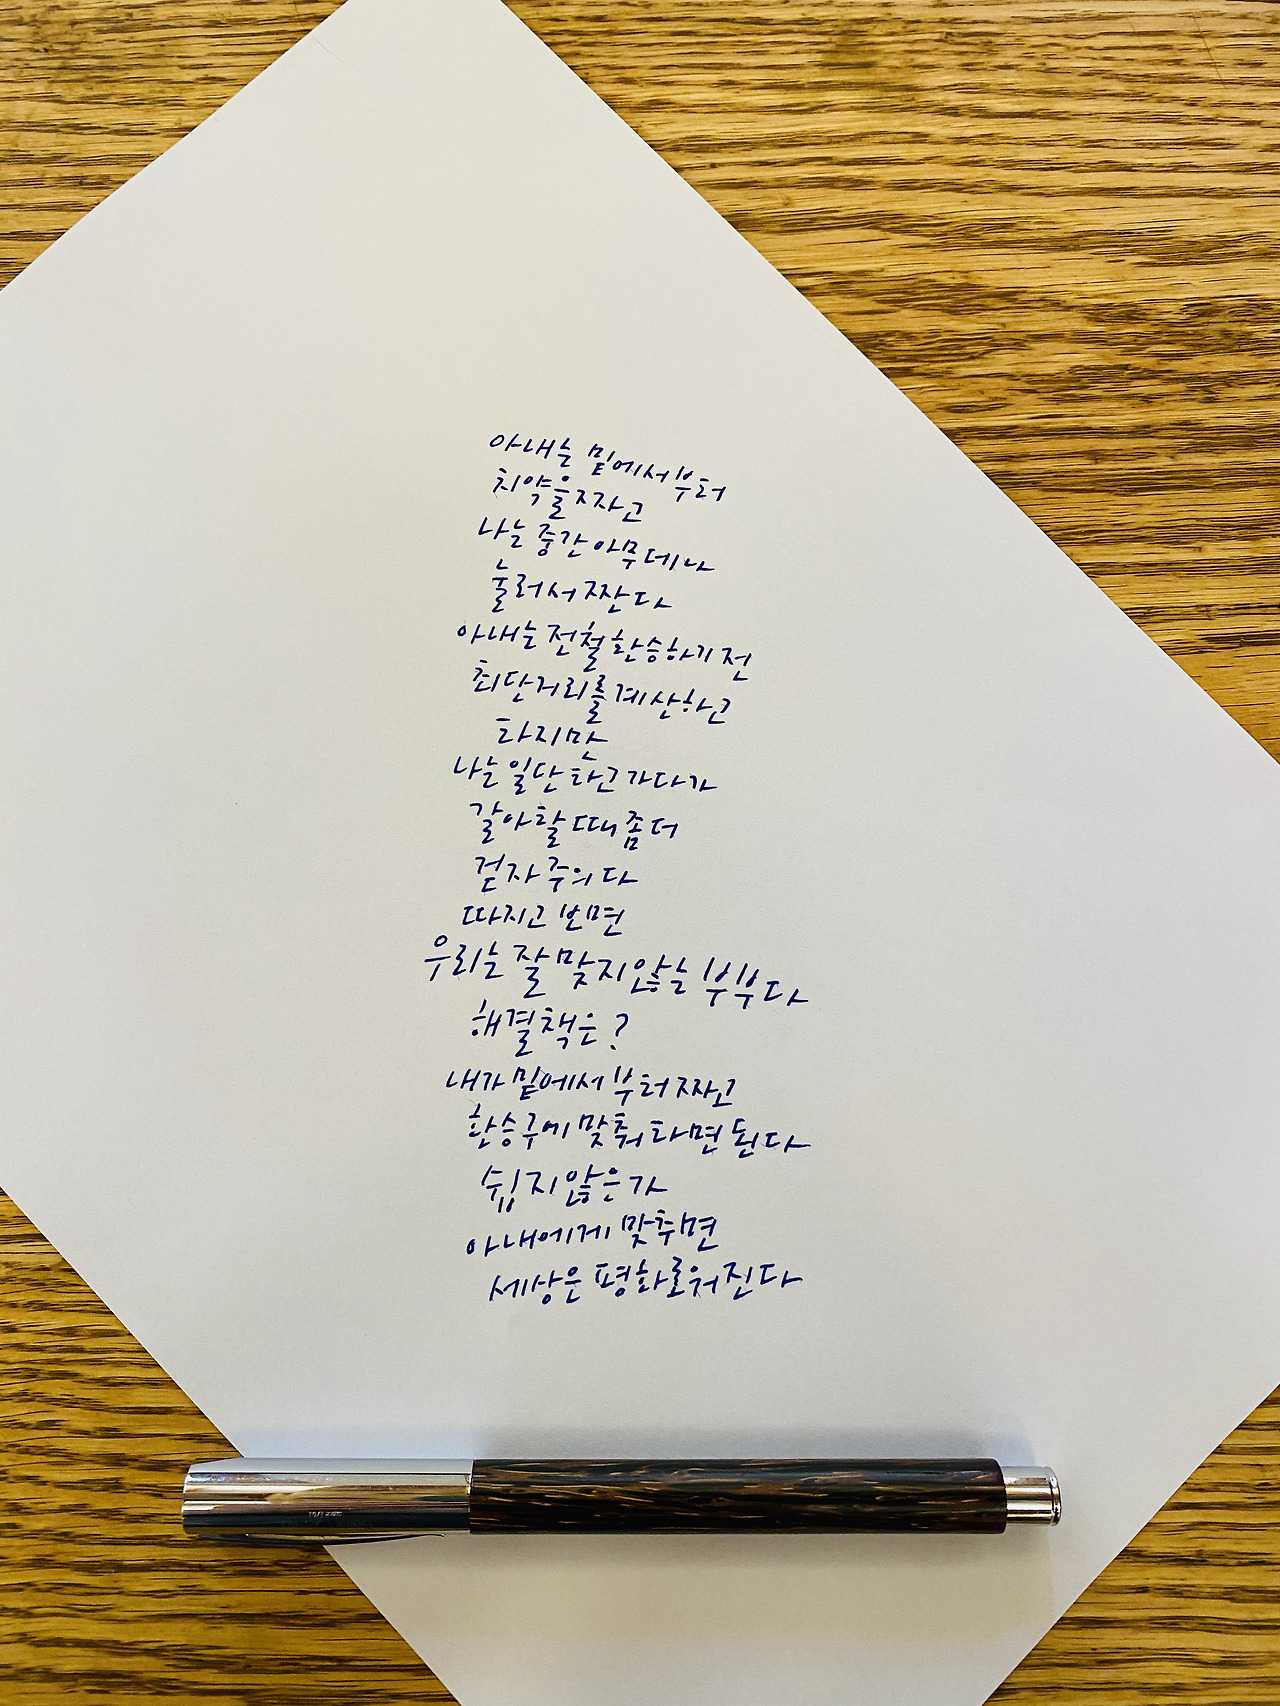 아내는 밑에서부터
치약을 짜고
나는 중간 아무데나
눌러서 짠다
아내는 전철 환승하기 전
최단거리를 계산하고
타지만
나는 일단 타고 가다가
갈아탈 때 좀 더
걷자 주의다
따지고 보면
우리는 잘 맞지 않는 부부다
해결책은?
내가 밑에서부터 짜고
환승구에 맞춰 타면 된다
쉽지 않은가
아내에게 맞추면
세상은 평화로워진다